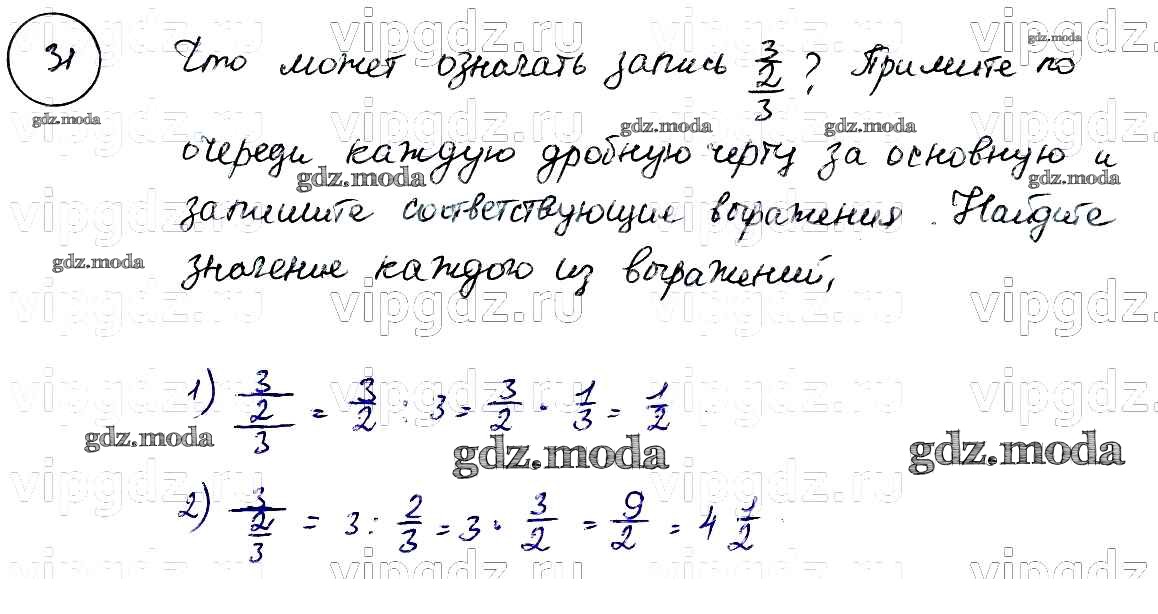 31 Что может означать запись 3/2/3? Примите по
очереди каждую дробную черту за основную и
запишите соответствующие выражения. Найдите
значение каждого из выражений,
1) 3/2/3 = 3/2 : 3 = 3/2 · 1/3 = 1/2
2) 3/2/3 = 3 : 2/3 = 3 · 3/2 = 9/2 = 4 1/2
vipgdz.ru
gdz.moda